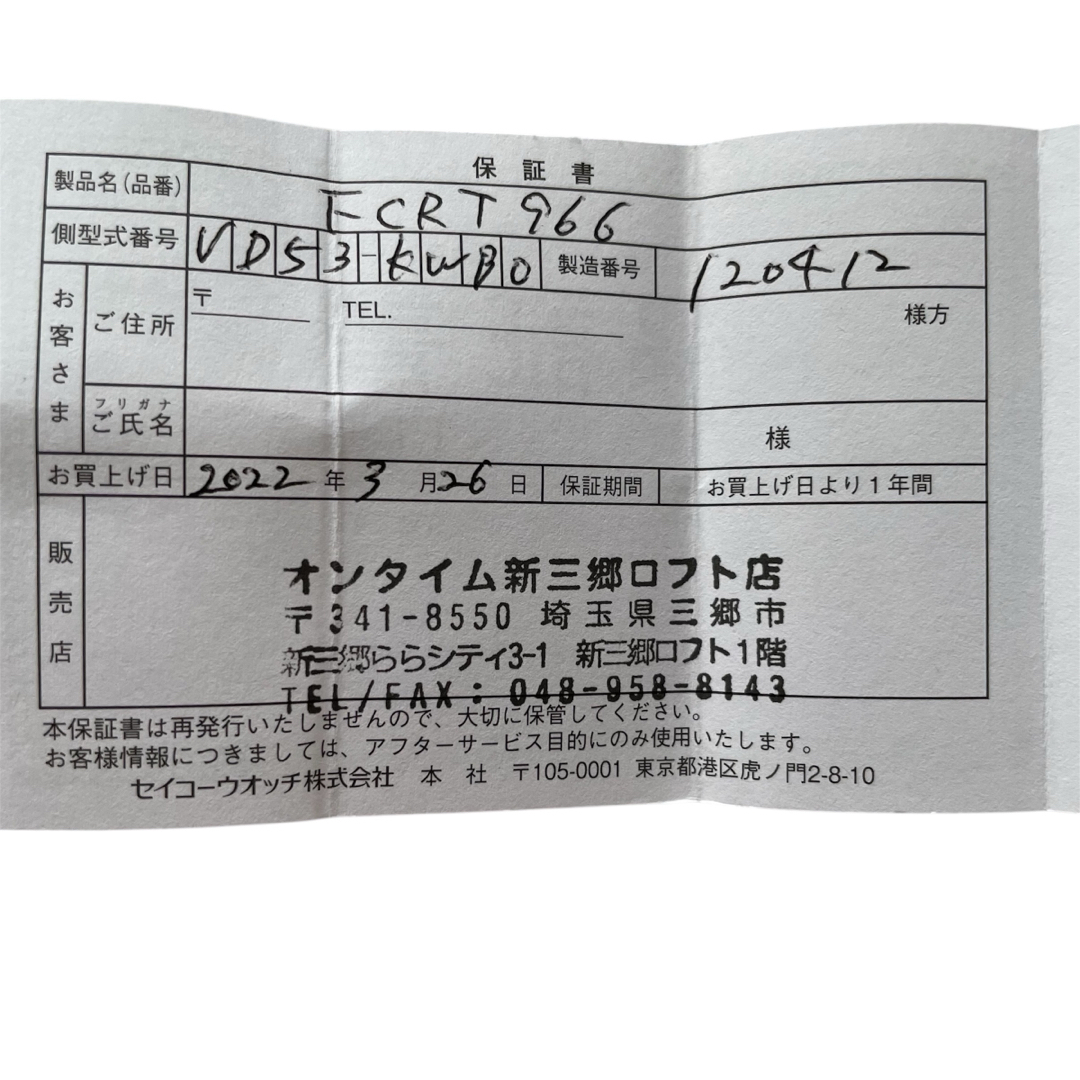 保証書
製品名(品番) FCRT966
側型式番号 VD53-KWB0 製造番号 120412
お客さま
ご住所 〒 TEL. 様方
フリガナ
ご氏名 様
お買上げ日 2022年3月26日 保証期間 お買上げ日より1年間
販売店
オンタイム新三郷ロフト店
〒341-8550 埼玉県三郷市
新三郷ららシティ3-1 新三郷ロフト1階
TEL/FAX: 048-958-8143
本保証書は再発行いたしませんので、大切に保管してください。
お客様情報につきましては、アフターサービス目的にのみ使用いたします。
セイコーウオッチ株式会社 本社 〒105-0001 東京都港区虎ノ門2-8-10